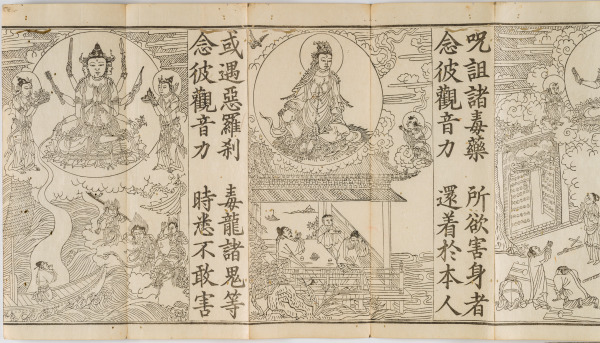 咒詛諸毒藥 所欲害身者
念彼觀音力 還着於本人
或遇惡羅刹 毒龍諸鬼等
念彼觀音力 時悉不敢害